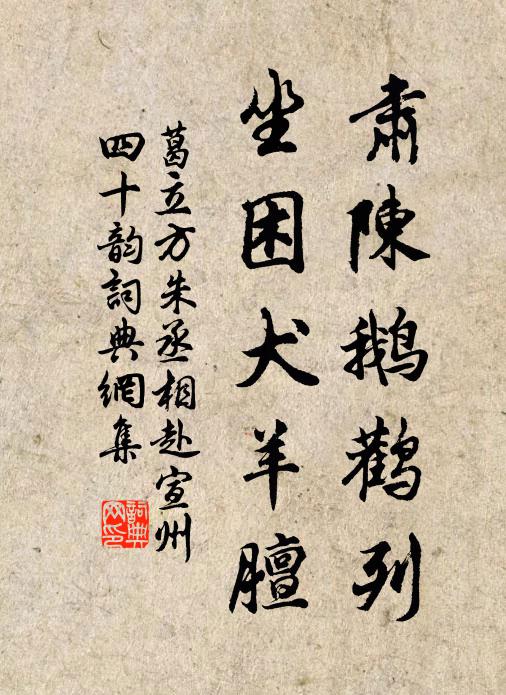 肅陳鵝鸛列
坐困犬羊膻
葛立方朱丞相赴宣州
四十韵詞典網集
詞典
网印